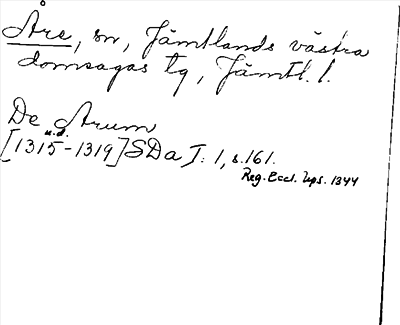 Åre, sn, Jämtlands västra
domsagas tg, Jämtl. l.
De Arum
u.d.
[1315-1319] SDa I: 1, s. 161.
Reg. Eccl. Ups. 1344